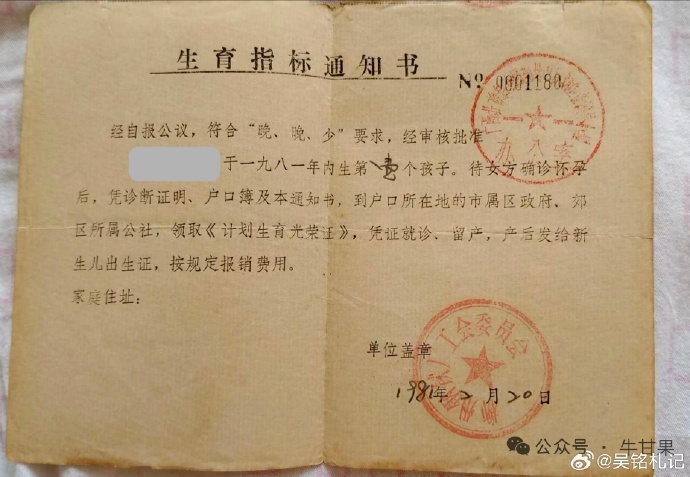 生育指标通知书
Nº 0001180
经自报公议，符合“晚、晚、少”要求，经审核批准
于一九八一年内生第壹个孩子。待女方确诊怀孕
后，凭诊断证明、户口簿及本通知书，到户口所在地的市属区政府、郊
区所属公社，领取《计划生育光荣证》，凭证就诊、留产，产后发给新
生儿出生证，按规定报销费用。
家庭住址：
单位盖章
工会委员会
1981年2月20日
公众号·牛甘果
@吴铭札记